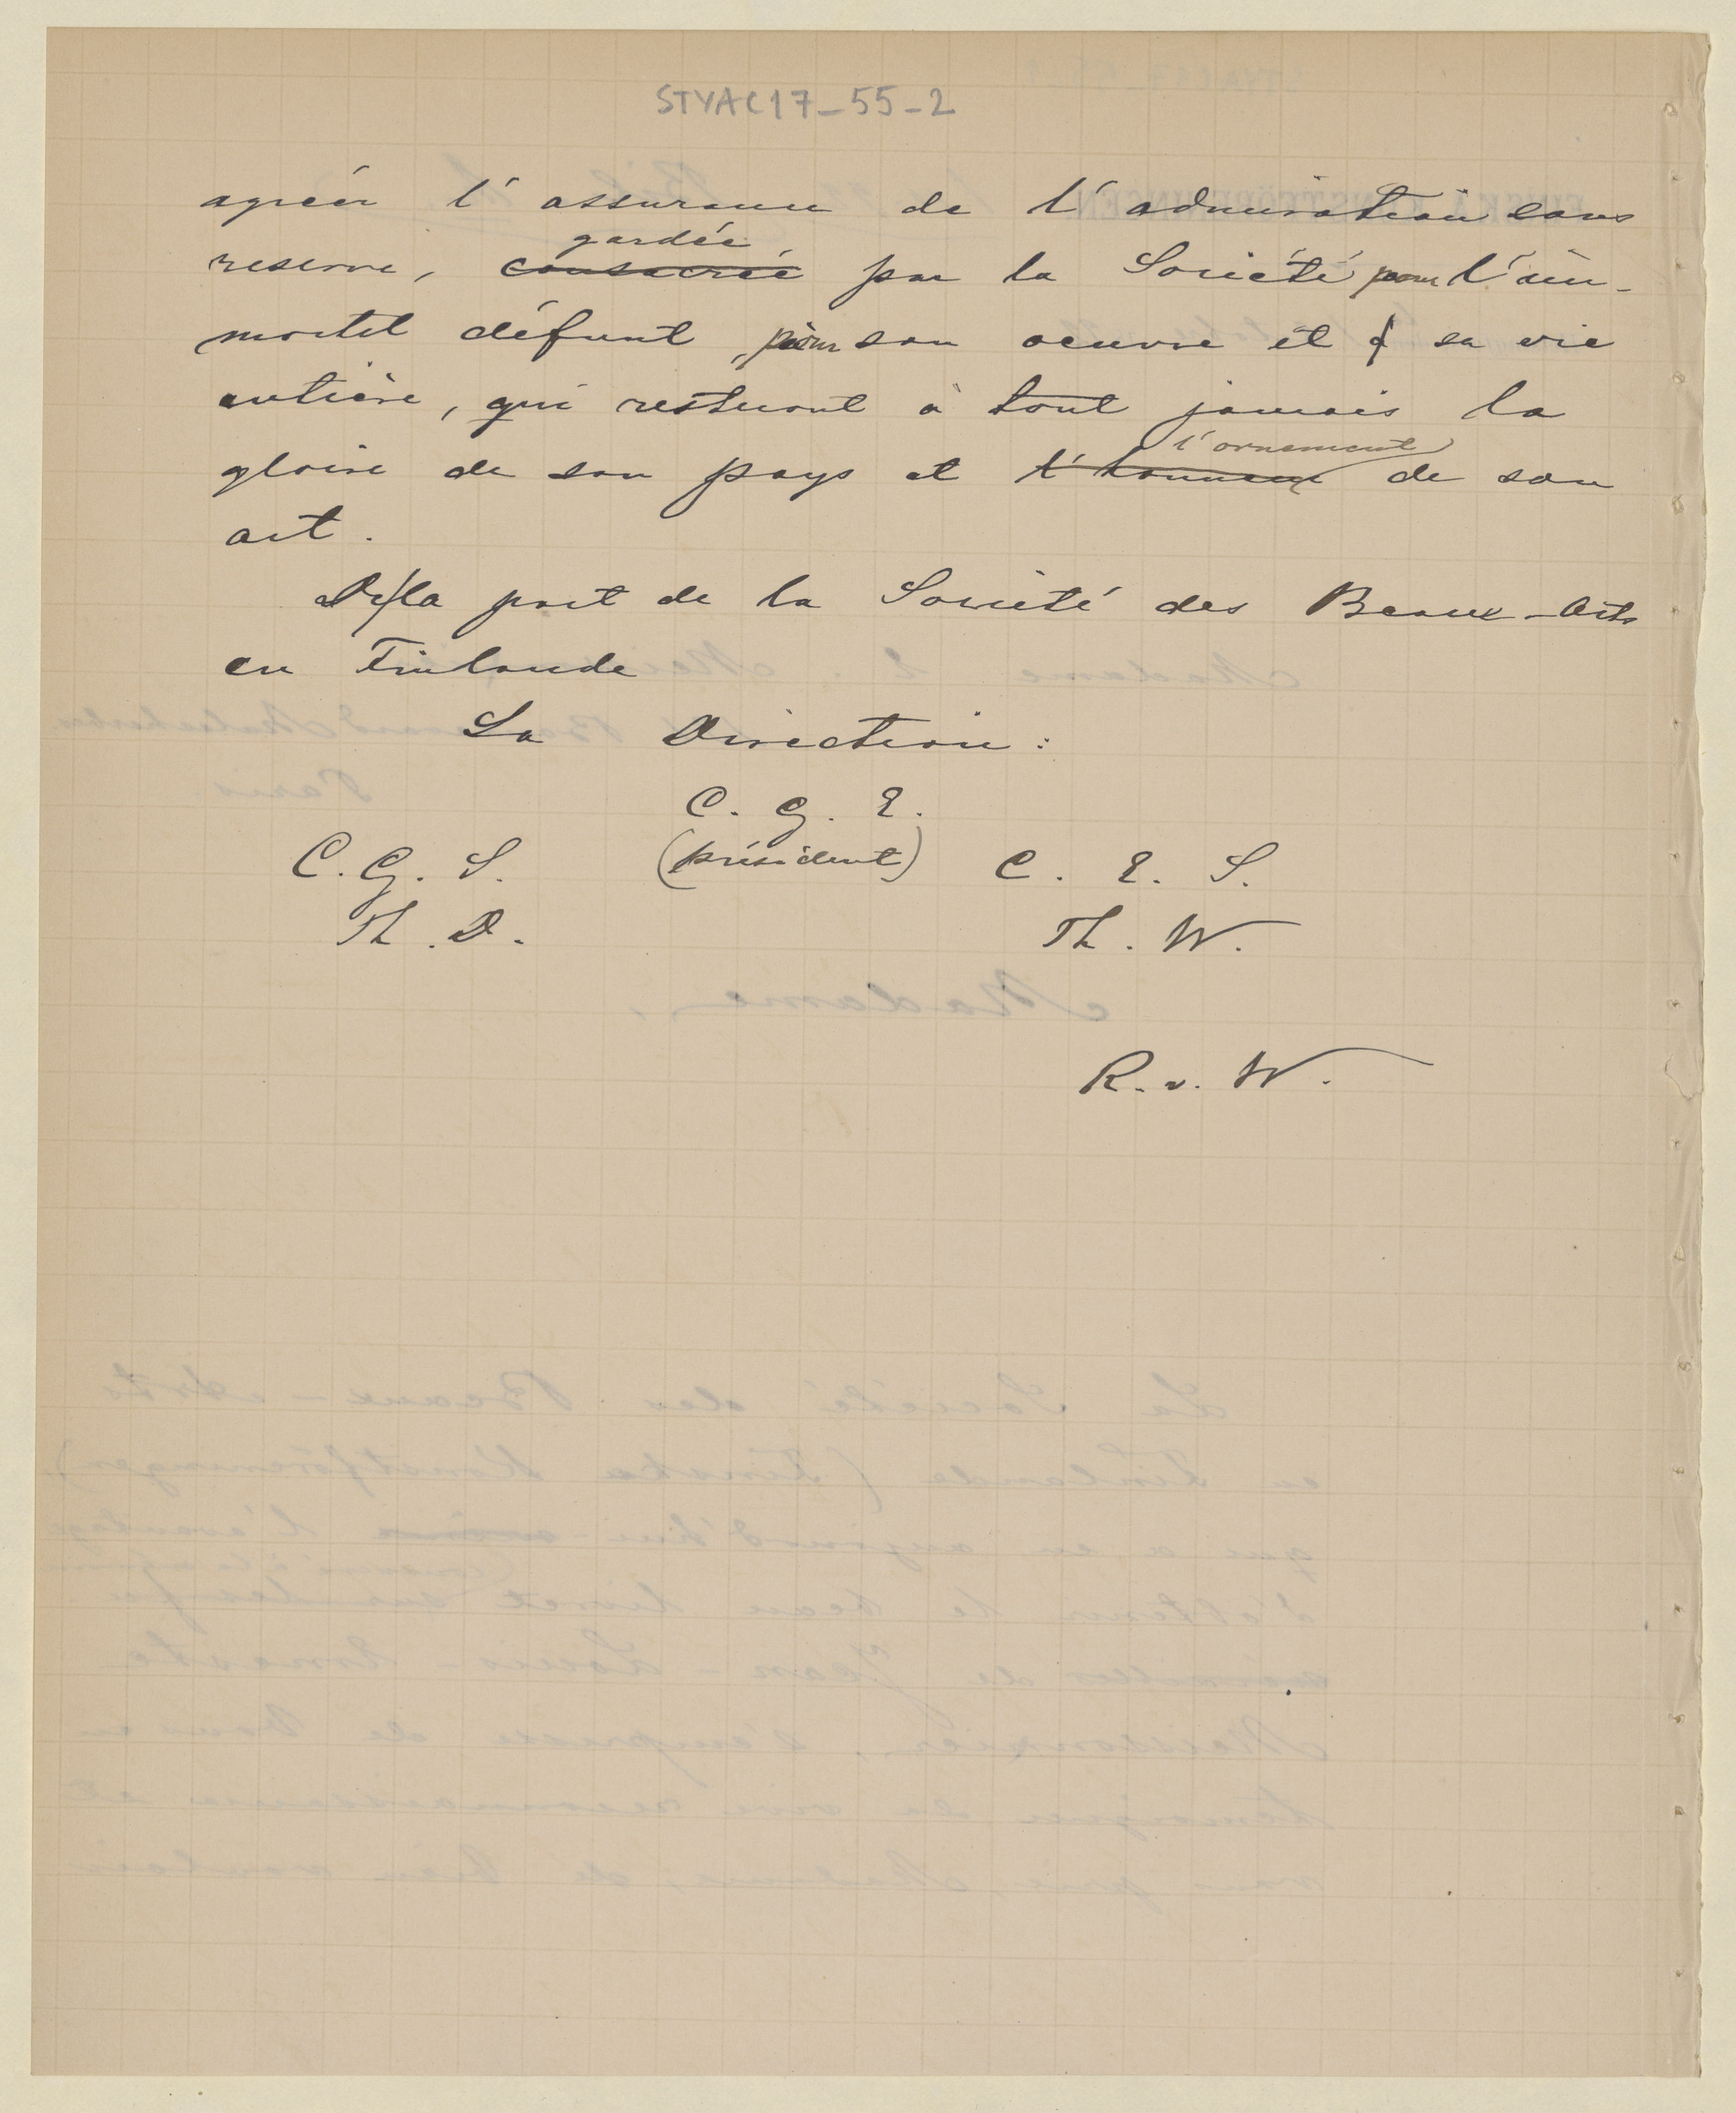 STYAC17_55_2
agréer l'assurance de l'admiration sans
gardée
reserve, consacrée par la Société pour l'im-
mortel défunt, pour son oeuvre et sa vie
entière, qui resteront à tout jamais la
l'ornement
gloire de son pays et l'honneur de son
art.
De la part de la Société des Beaux-Arts
en Finlande
La Direction:
C. G. E.
C. G. S. (président) C. E. S.
Th. D. Th. W.
R. v. W.